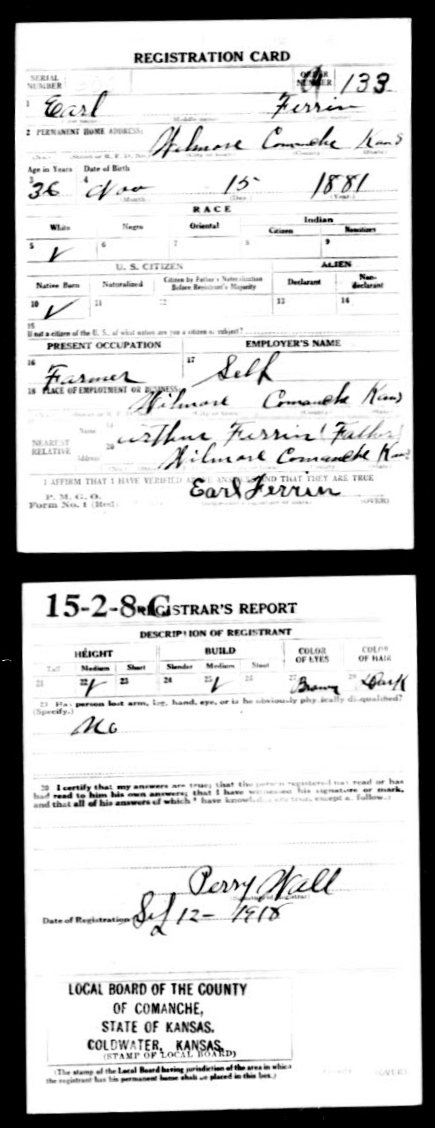 REGISTRATION CARD
SERIAL NUMBER
ORDER NUMBER 133
1 Earl Ferrin
2 PERMANENT HOME ADDRESS:
Wilmore Comanche Kans
Age in Years Date of Birth
3 36 4 Nov 15 1881
(Month) (Day) (Year)
RACE
White Negro Oriental Indian
Citizen Noncitizen
5 ✓ 6 7 8 9
U. S. CITIZEN ALIEN
Native Born Naturalized Citizen by Father's Naturalization Before Registrant's Majority Declarant Non-declarant
10 ✓ 11 12 13 14
15
If not a citizen of the U. S., of what nation are you a citizen or subject?
PRESENT OCCUPATION EMPLOYER'S NAME
16 Farmer 17 Self
18 PLACE OF EMPLOYMENT OR BUSINESS:
Wilmore Comanche Kans
NEAREST RELATIVE
Name 19 Arthur Ferrin (Father)
Address 20 Wilmore Comanche Kans
I AFFIRM THAT I HAVE VERIFIED ABOVE ANSWERS AND THAT THEY ARE TRUE
P. M. G. O.
Form No. 1 (Red) Earl Ferrin (OVER)
15-2-8-C REGISTRAR'S REPORT
DESCRIPTION OF REGISTRANT
HEIGHT BUILD COLOR OF EYES COLOR OF HAIR
Tall Medium Short Slender Medium Stout
21 22 ✓ 23 24 25 ✓ 26 27 Brown 28 Dark
29 Has person lost arm, leg, hand, eye, or is he obviously physically disqualified?
(Specify.)
No
30 I certify that my answers are true; that the person registered has read or has
had read to him his own answers; that I have witnessed his signature or mark,
and that all of his answers of which I have knowledge are true, except as follows:
Perry Wall
(Signature of Registrar)
Date of Registration 12- 1918
LOCAL BOARD OF THE COUNTY
OF COMANCHE,
STATE OF KANSAS.
COLDWATER, KANSAS.
(STAMP OF LOCAL BOARD)
(The stamp of the Local Board having jurisdiction of the area in which
the registrant has his permanent home shall be placed in this box.)
(OVER)